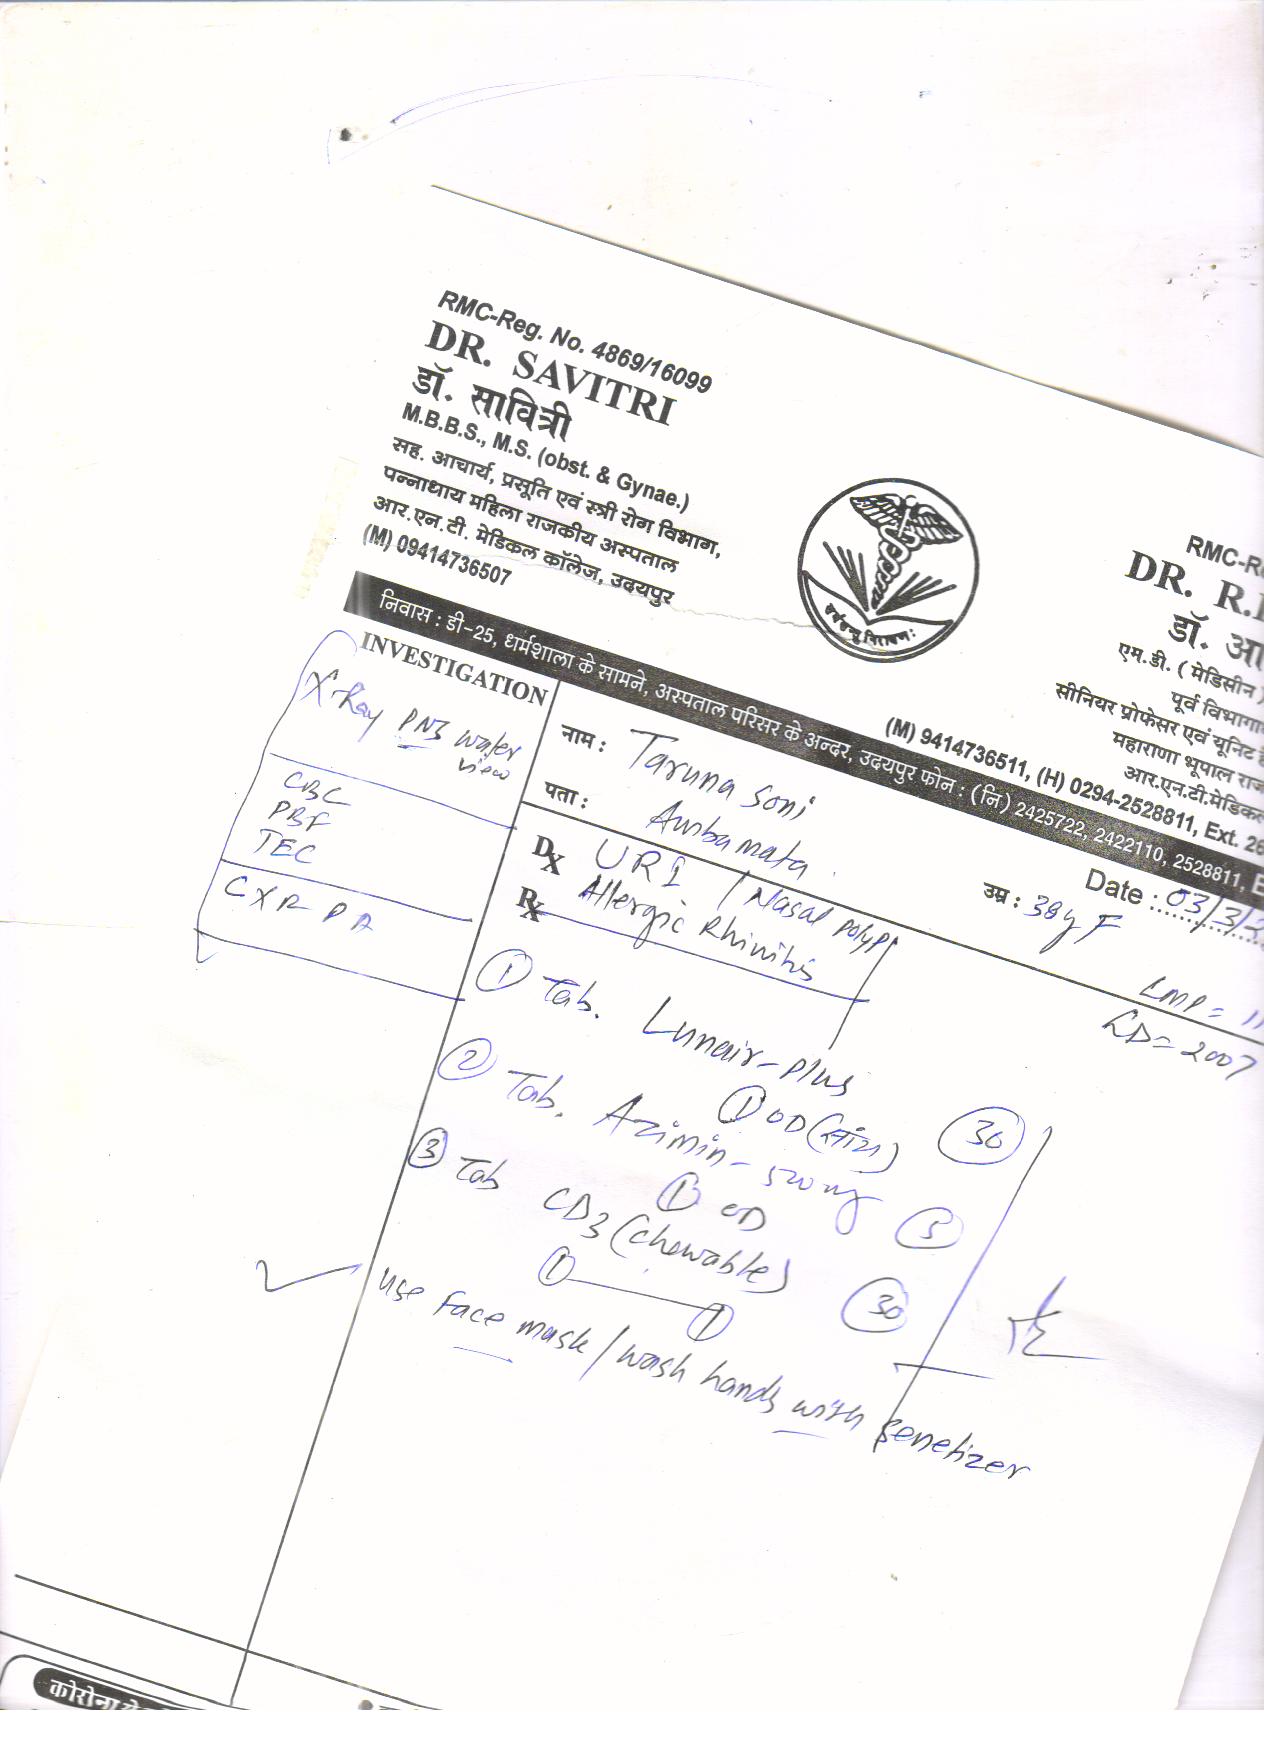 RMC-Reg. No. 4869/16099
DR. SAVITRI
डॉ. सावित्री
M.B.B.S., M.S. (obst. & Gynae.)
सह. आचार्य, प्रसूति एवं स्त्री रोग विभाग,
पन्नाधाय महिला राजकीय अस्पताल
आर.एन.टी. मेडिकल कॉलेज, उदयपुर
(M) 09414736507
RMC-R
DR. R.
डॉ. आ
एम.डी. ( मेडिसीन )
पूर्व विभागा
सीनियर प्रोफेसर एवं यूनिट
महाराणा भूपाल राज
आर.एन.टी.मेडिकल
(M) 9414736511, (H) 0294-2528811, Ext. 26
निवास : डी-25, धर्मशाला के सामने, अस्पताल परिसर के अन्दर, उदयपुर फोन : (नि) 2425722, 2422110, 2528811, E
INVESTIGATION
X-Ray PNS water
view
CBC
PBF
TEC
CXR PA
नाम : Taruna Soni
पता : Ambamata
Date : 03/3/2
उम्र : 38y F
LMP = 11
LD = 2007
Dx URI / Nasal polyp
Rx Allergic Rhinitis
1 Tab. Lunair-plus
1 OD 30
2 Tab. Azimin - 500 mg
1 OD 5
3 Tab CD3 (chewable)
1 1 30
use face mask / wash hands with senetizer
कोरोना